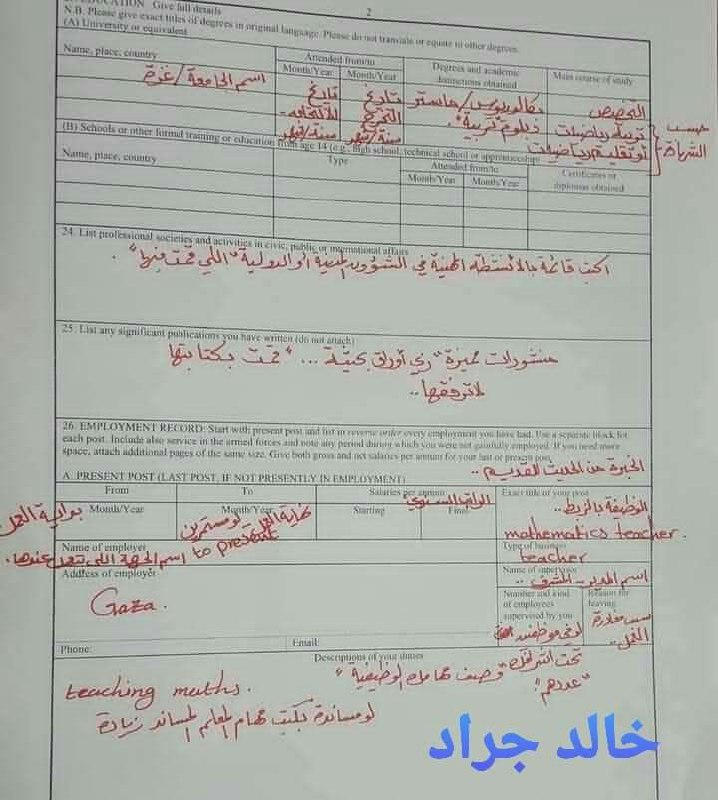 EDUCATION Give full details
2
N.B. Please give exact titles of degrees in original language. Please do not translate or equate to other degrees.
(A) University or equivalent
Name, place, country
Attended from/to
Month/Year
Month/Year
Degrees and academic
distinctions obtained
Main course of study
اسم الجامعة / غزة
تاريخ
الالتحاق
سنة/شهر
تاريخ
التخرج
سنة/شهر
بكالوريوس / ماجستير
دبلوم "تربية".
التخصص
تربية رياضيات
أو تعليم رياضيات
حسب
الشهادة
(B) Schools or other formal training or education from age 14 (e.g., high school, technical school or apprenticeship)
Name, place, country
Type
Attended from/to
Month/Year
Month/Year
Certificates or
diplomas obtained
24. List professional societies and activities in civic, public or international affairs
اكتب قائمة بالأنشطة المهنية في الشؤون المدنية أو الدولية "اللي قمت فيها".
25. List any significant publications you have written (do not attach)
منشورات مميزة "زي أوراق بحثية ... " قمت بكتابتها
لا ترفقها..
26. EMPLOYMENT RECORD: Start with present post and list in reverse order every employment you have had. Use a separate block for
each post. Include also service in the armed forces and note any period during which you were not gainfully employed. If you need more
space, attach additional pages of the same size. Give both gross and net salaries per annum for your last or present post.
الخبرة من الحديث للقديم..
A. PRESENT POST (LAST POST, IF NOT PRESENTLY IN EMPLOYMENT)
From
Month/Year
بداية العمل
To
Month/Year
نهاية العمل
لو مستمرين
to present
Salaries per annum
الراتب السنوي
Starting
Final
Exact title of your post
الوظيفة بالزبط..
mathematics teacher.
Name of employer
اسم الجهة اللي بتعمل عندها.
Type of business
teacher
Address of employer
Gaza.
Name of supervisor
اسم المدير - المشرف..
Number and kind
of employees
supervised by you
لو في موظفين
تحت اشرافك
"عددهم"
Reason for
leaving
سبب مغادرة
العمل..
Phone:
Email:
Descriptions of your duties
وصف مهامك الوظيفية "
teaching maths.
لو مساندة بكتب مهام المعلم المساند زيادة
خالد جراد